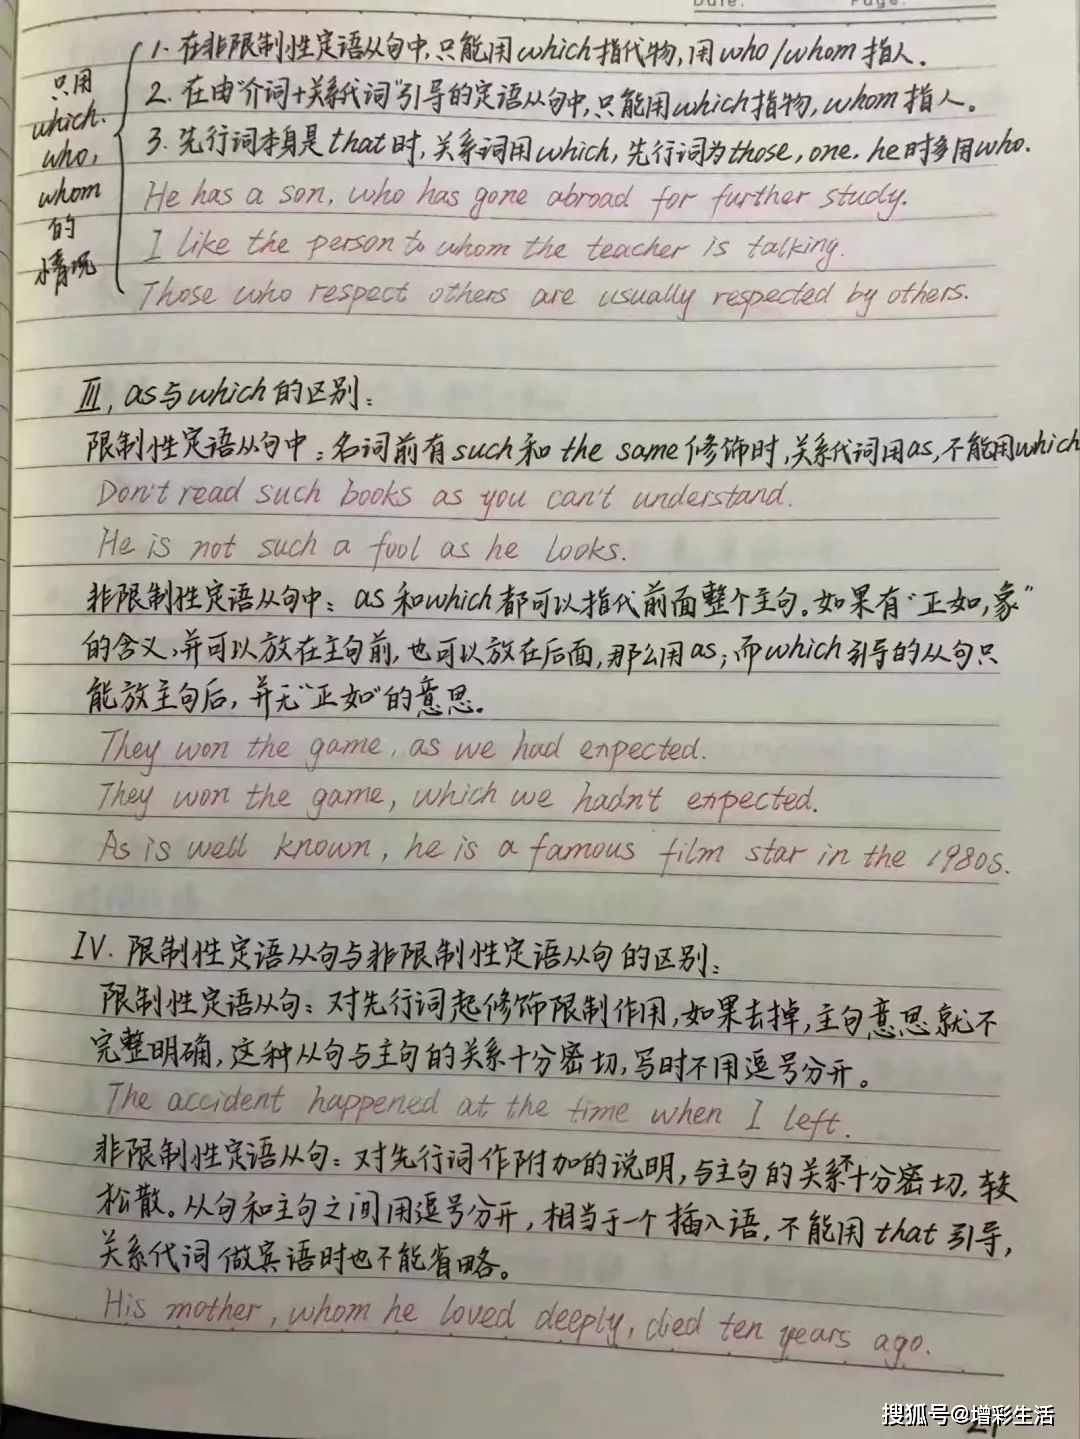 Date. Page.
1. 在非限制性定语从句中,只能用which指代物,用who/whom指人.
2. 在由"介词+关系代词"引导的定语从句中,只能用which指物,whom指人。
3. 先行词本身是that时,关系词用which,先行词为those,one,he时多用who.
只用
which.
who,
whom
的
情况
He has a son, who has gone abroad for further study.
I like the person to whom the teacher is talking.
Those who respect others are usually respected by others.
III, as与which的区别:
限制性定语从句中:名词前有such和the same修饰时,关系代词用as,不能用which
Don't read such books as you can't understand.
He is not such a fool as he looks.
非限制性定语从句中:as和which都可以指代前面整个主句。如果有"正如,象"
的含义,并可以放在主句前,也可以放在后面,那么用as;而which引导的从句只
能放主句后,并无"正如"的意思。
They won the game, as we had expected.
They won the game, which we hadn't expected.
As is well known, he is a famous film star in the 1980s.
IV. 限制性定语从句与非限制性定语从句的区别:
限制性定语从句:对先行词起修饰限制作用,如果去掉,主句意思就不
完整明确,这种从句与主句的关系十分密切,写时不用逗号分开。
The accident happened at the time when I left.
非限制性定语从句:对先行词作附加的说明,与主句的关系不十分密切,较
松散。从句和主句之间用逗号分开,相当于一个插入语,不能用that引导,
关系代词做宾语时也不能省略。
His mother, whom he loved deeply, died ten years ago.
搜狐号@增彩生活